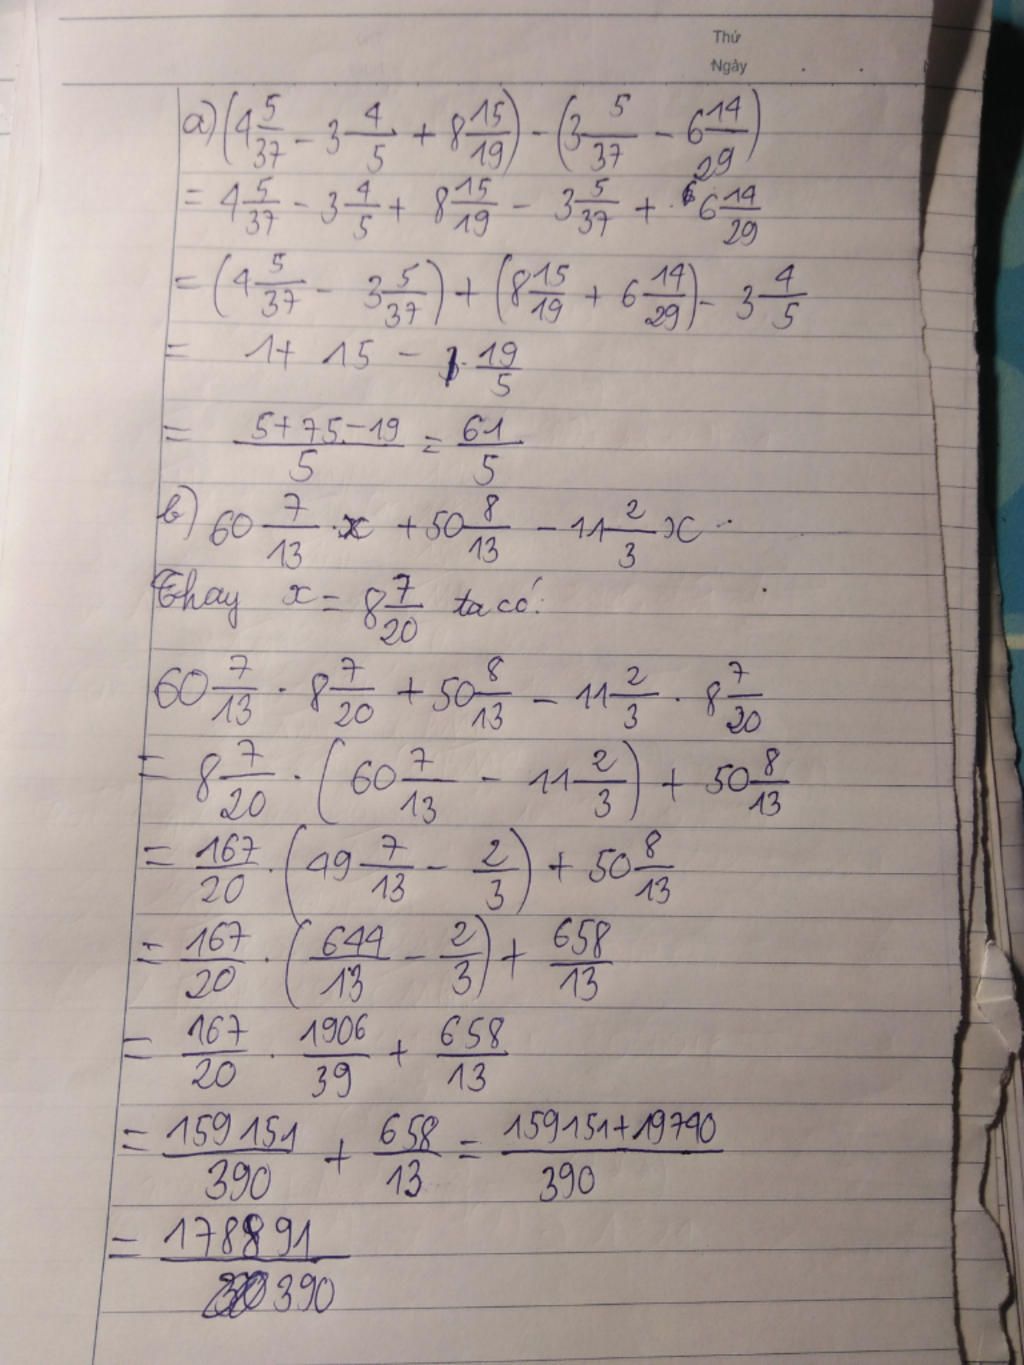 Thứ
Ngày
a) (4 5/37 - 3 4/5 + 8 15/19) - (3 5/37 - 6 14/29)
= 4 5/37 - 3 4/5 + 8 15/19 - 3 5/37 + 6 14/29
= (4 5/37 - 3 5/37) + (8 15/19 + 6 14/29) - 3 4/5
= 1 + 15 - 19/5
= (5+75-19)/5 = 61/5
b) 60 7/13 . x + 50 8/13 - 11 2/3 x
Thay x = 8 7/20 ta có:
60 7/13 . 8 7/20 + 50 8/13 - 11 2/3 . 8 7/20
= 8 7/20 . (60 7/13 - 11 2/3) + 50 8/13
= 167/20 . (49 7/13 - 2/3) + 50 8/13
= 167/20 . (644/13 - 2/3) + 658/13
= 167/20 . 1906/39 + 658/13
= 159151/390 + 658/13 = (159151+19740)/390
= 178891/390